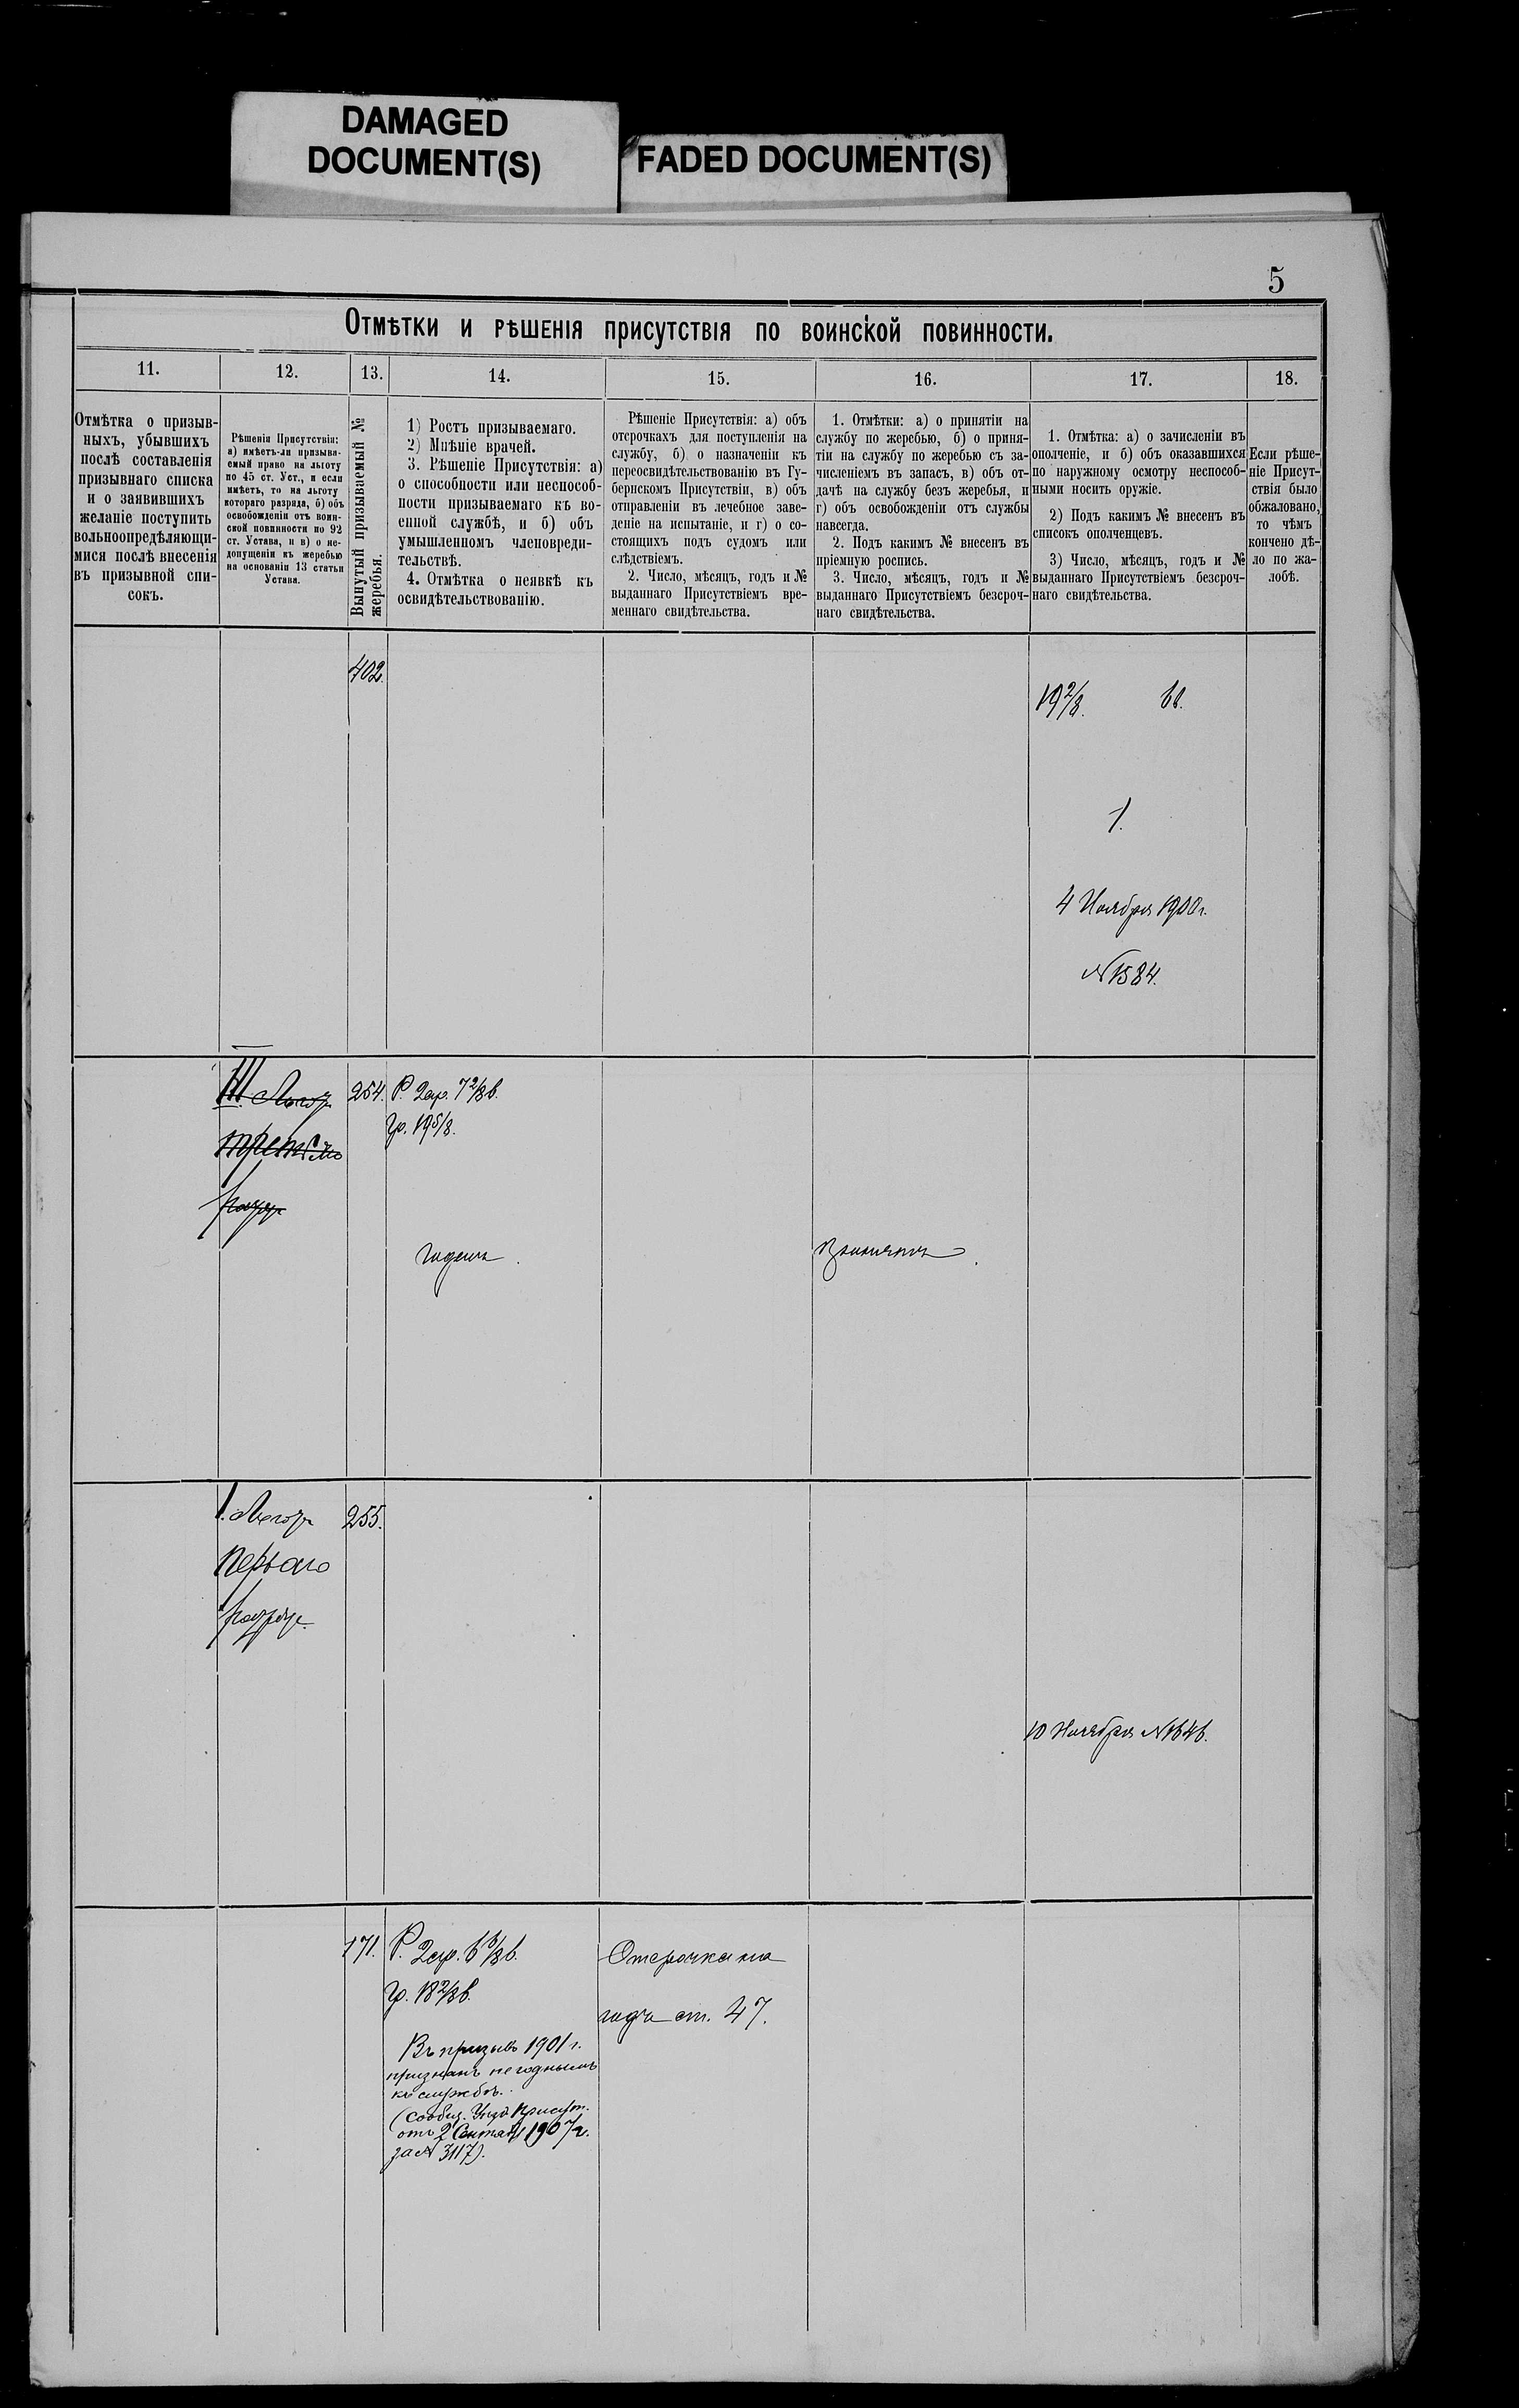 DAMAGED
DOCUMENT(S)
FADED DOCUMENT(S)
5
Отмѣтки и рѣшенія присутствія по воинской повинности.
11.
12.
13.
14.
15.
16.
17.
18.
Отмѣтка о призыв-
ныхъ, убывшихъ
послѣ составленія
призывнаго списка
и о заявившихъ
желаніе поступить
вольноопредѣляющи-
мися послѣ внесенія
въ призывной спи-
сокъ.
Рѣшенія Присутствія:
а) имѣетъ-ли призыва-
емый право на льготу
по 45 ст. Уст., и если
имѣетъ, то на льготу
котораго разряда, б) объ
освобожденіи отъ воин-
ской повинности по 92
ст. Устава, и в) о не-
допущеніи къ жеребью
на основаніи 13 статьи
Устава.
Вынутый призываемый №
жеребья.
1) Ростъ призываемаго.
2) Мнѣніе врачей.
3. Рѣшеніе Присутствія: а)
о способности или неспособ-
ности призываемаго къ во-
енной службѣ, и б) объ
умышленномъ членовреди-
тельствѣ.
4. Отмѣтка о неявкѣ къ
освидѣтельствованію.
Рѣшеніе Присутствія: а) объ
отсрочкахъ для поступленія на
службу, б) о назначеніи къ
переосвидѣтельствованію въ Гу-
бернскомъ Присутствіи, в) объ
отправленіи въ лечебное заве-
деніе на испытаніе, и г) о со-
стоящихъ подъ судомъ или
слѣдствіемъ.
2. Число, мѣсяцъ, годъ и №
выданнаго Присутствіемъ вре-
меннаго свидѣтельства.
1. Отмѣтки: а) о принятіи на
службу по жеребью, б) о приня-
тіи на службу по жеребью съ за-
численіемъ въ запасъ, в) объ от-
дачѣ на службу безъ жеребья, и
г) объ освобожденіи отъ службы
навсегда.
2. Подъ какимъ № внесенъ въ
пріемную роспись.
3. Число, мѣсяцъ, годъ и №
выданнаго Присутствіемъ безсроч-
наго свидѣтельства.
1. Отмѣтка: а) о зачисленіи въ
ополченіе, и б) объ оказавшихся
по наружному осмотру неспособ-
ными носить оружіе.
2) Подъ какимъ № внесенъ въ
списокъ ополченцевъ.
3) Число, мѣсяцъ, годъ и №
выданнаго Присутствіемъ безсроч-
наго свидѣтельства.
Если рѣше-
ніе Присут-
ствія было
обжаловано,
то чѣмъ
кончено дѣ-
ло по жа-
лобѣ.
402.
19 2/8.
1.
4 Ноября 1900 г.
№ 1584.
III.
третьяго
разр
254.
Р. 2 ар. 7 2/8 в.
гр. 19 5/8.
годенъ.
1.
перваго
разряда
255.
10 Ноября № 1646.
171.
Р. 2 ар. 6 6/8 в.
гр. 18 2/8 в.
Въ призывъ 1901 г.
признанъ негоднымъ
къ службѣ.
(сообщ. Уѣзд. Присут.
отъ 2 Сентяб. 1907 г.
за № 3117).
Отсрочка на
годъ ст. 47.